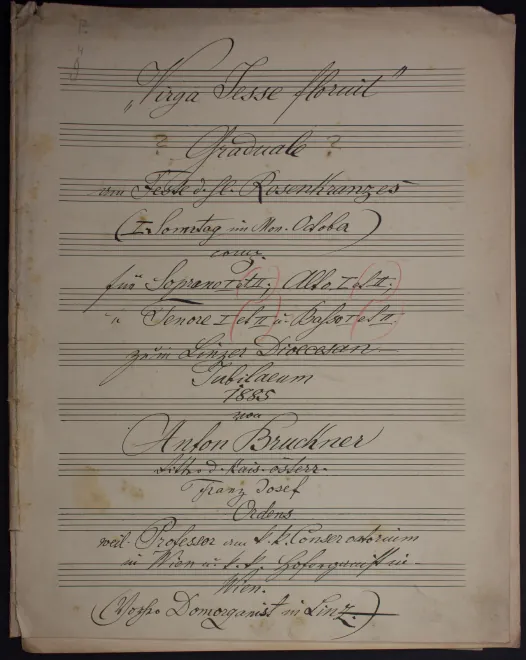 „Virga Jesse floruit"
? Graduale ?
vom Feste d. hl. Rosenkranzes
(I. Sonntag im Mon. October)
comp.
für Soprano I et II; Alto I et II;
" Tenore I et II u. Basso I et II.
zum Linzer Dioecesan-
Jubilaeum
1885
von
Anton Bruckner
d. kais. österr.
Franz Josef
Ordens
weil. Professor am k. k. Conservatorium
in Wien u. k. k. Hoforganist in
Wien.
(Vorher Domorganist in Linz.)